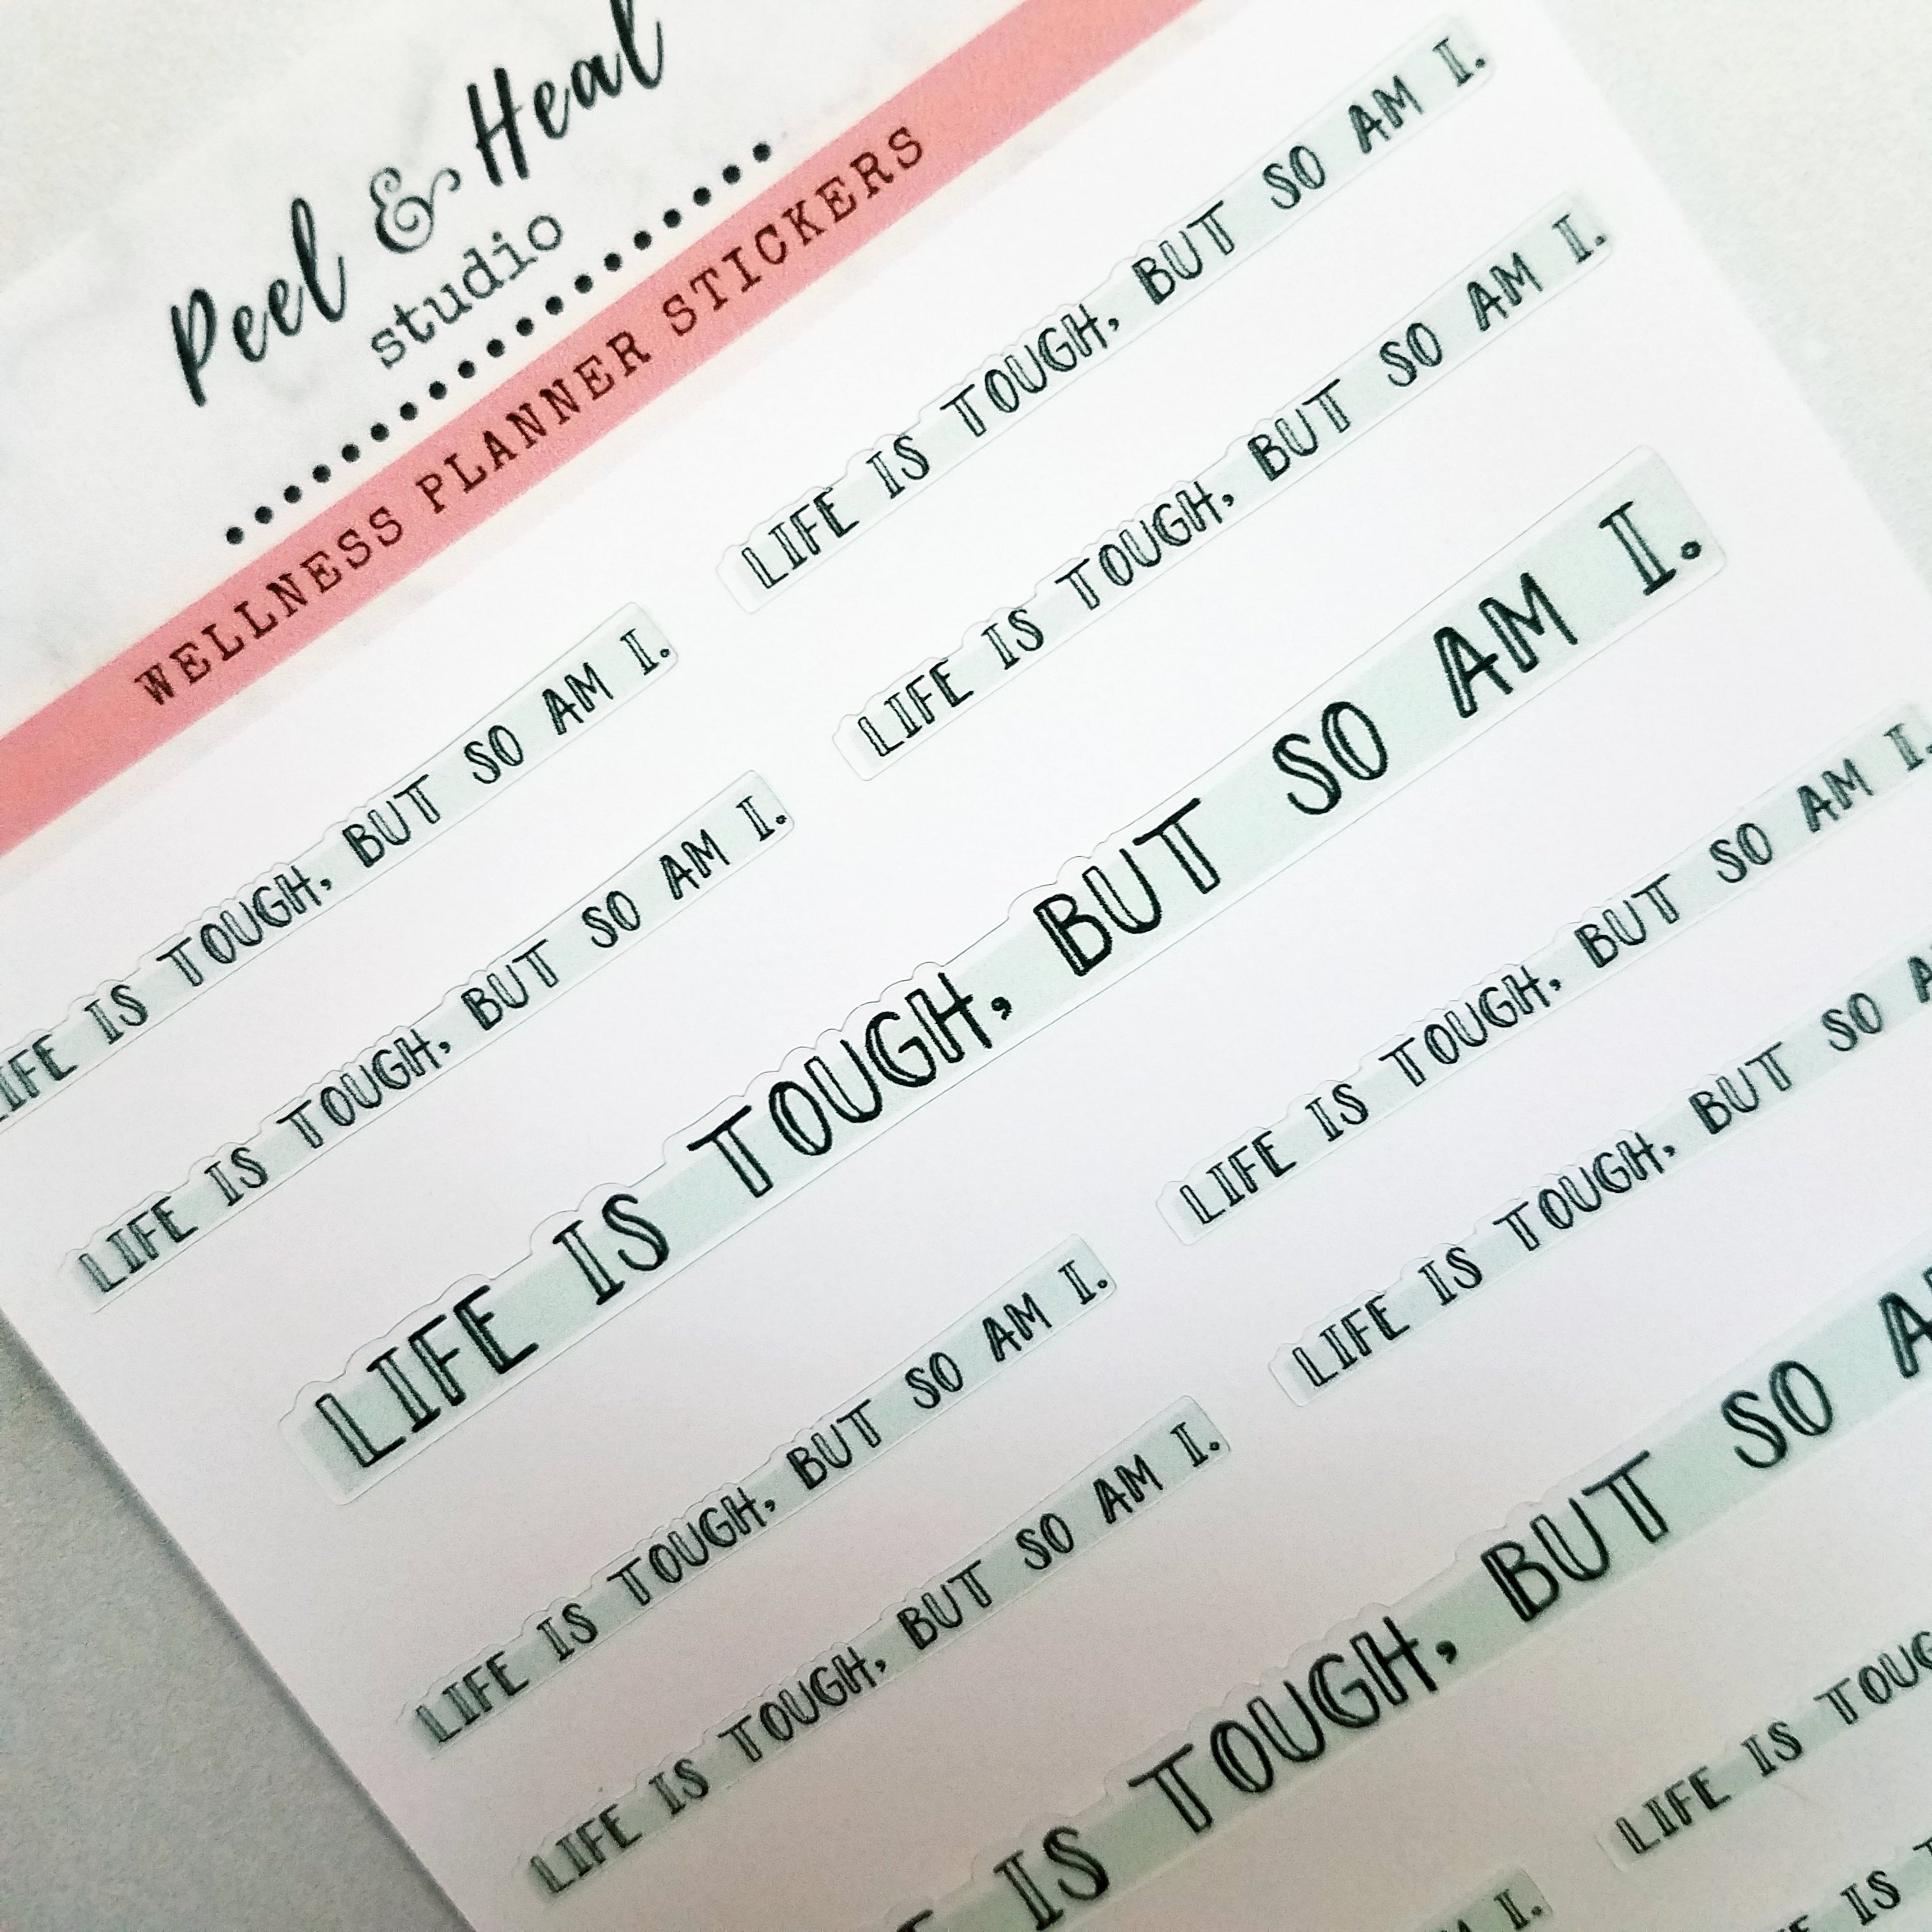 Peel & Heal
studio
WELLNESS PLANNER STICKERS
LIFE IS TOUGH, BUT SO AM I.
LIFE IS TOUGH, BUT SO AM I.
LIFE IS TOUGH, BUT SO AM I.
LIFE IS TOUGH, BUT SO AM I.
LIFE IS TOUGH, BUT SO AM I.
LIFE IS TOUGH, BUT SO AM I.
LIFE IS TOUGH, BUT SO AM I.
LIFE IS TOUGH, BUT SO AM I.
LIFE IS TOUGH, BUT SO
IS TOUGH, BUT SO
LIFE IS
IS
AM I.